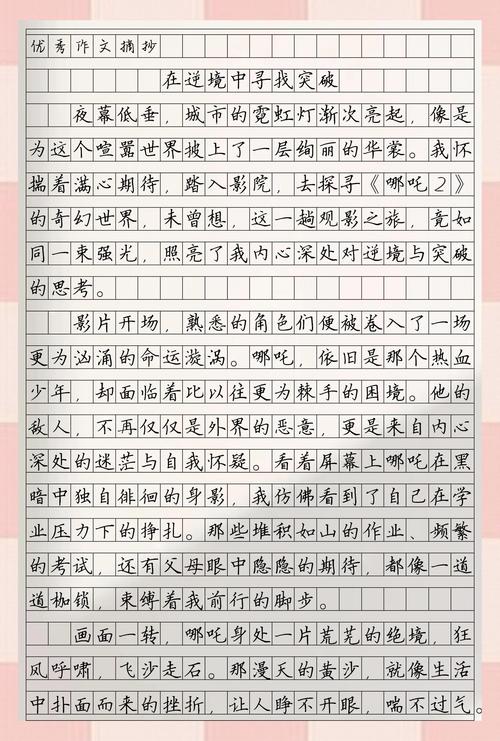 优秀作文摘抄
在逆境中寻找突破
夜幕低垂，城市的霓虹灯渐次亮起，像是
为这个喧嚣世界披上了一层绚丽的华裳。我怀
揣着满心期待，踏入影院，去探寻《哪吒2》
的奇幻世界，未曾想，这一趟观影之旅，竟如
同一束强光，照亮了我内心深处对逆境与突破
的思考。
影片开场，熟悉的角色们便被卷入了一场
更为汹涌的命运漩涡。哪吒，依旧是那个热血
少年，却面临着比以往更为棘手的困境。他的
敌人，不再仅仅是外界的恶意，更是来自内心
深处的迷茫与自我怀疑。看着屏幕上哪吒在黑
暗中独自徘徊的身影，我仿佛看到了自己在学
业压力下的挣扎。那些堆积如山的作业、频繁
的考试，还有父母眼中隐隐的期待，都像一道
道枷锁，束缚着我前行的脚步。
画面一转，哪吒身处一片荒芜的绝境，狂
风呼啸，飞沙走石。那漫天的黄沙，就像生活
中扑面而来的挫折，让人睁不开眼，喘不过气。